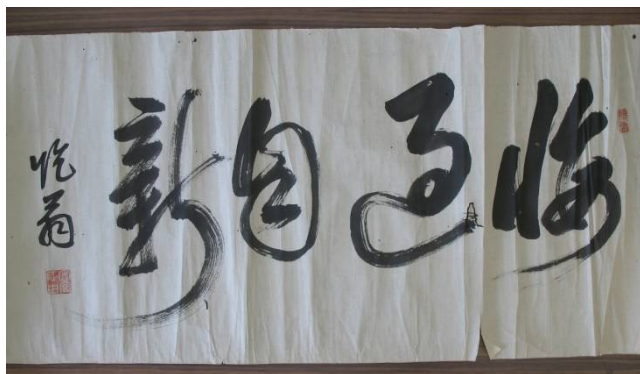 悔過自新
翁